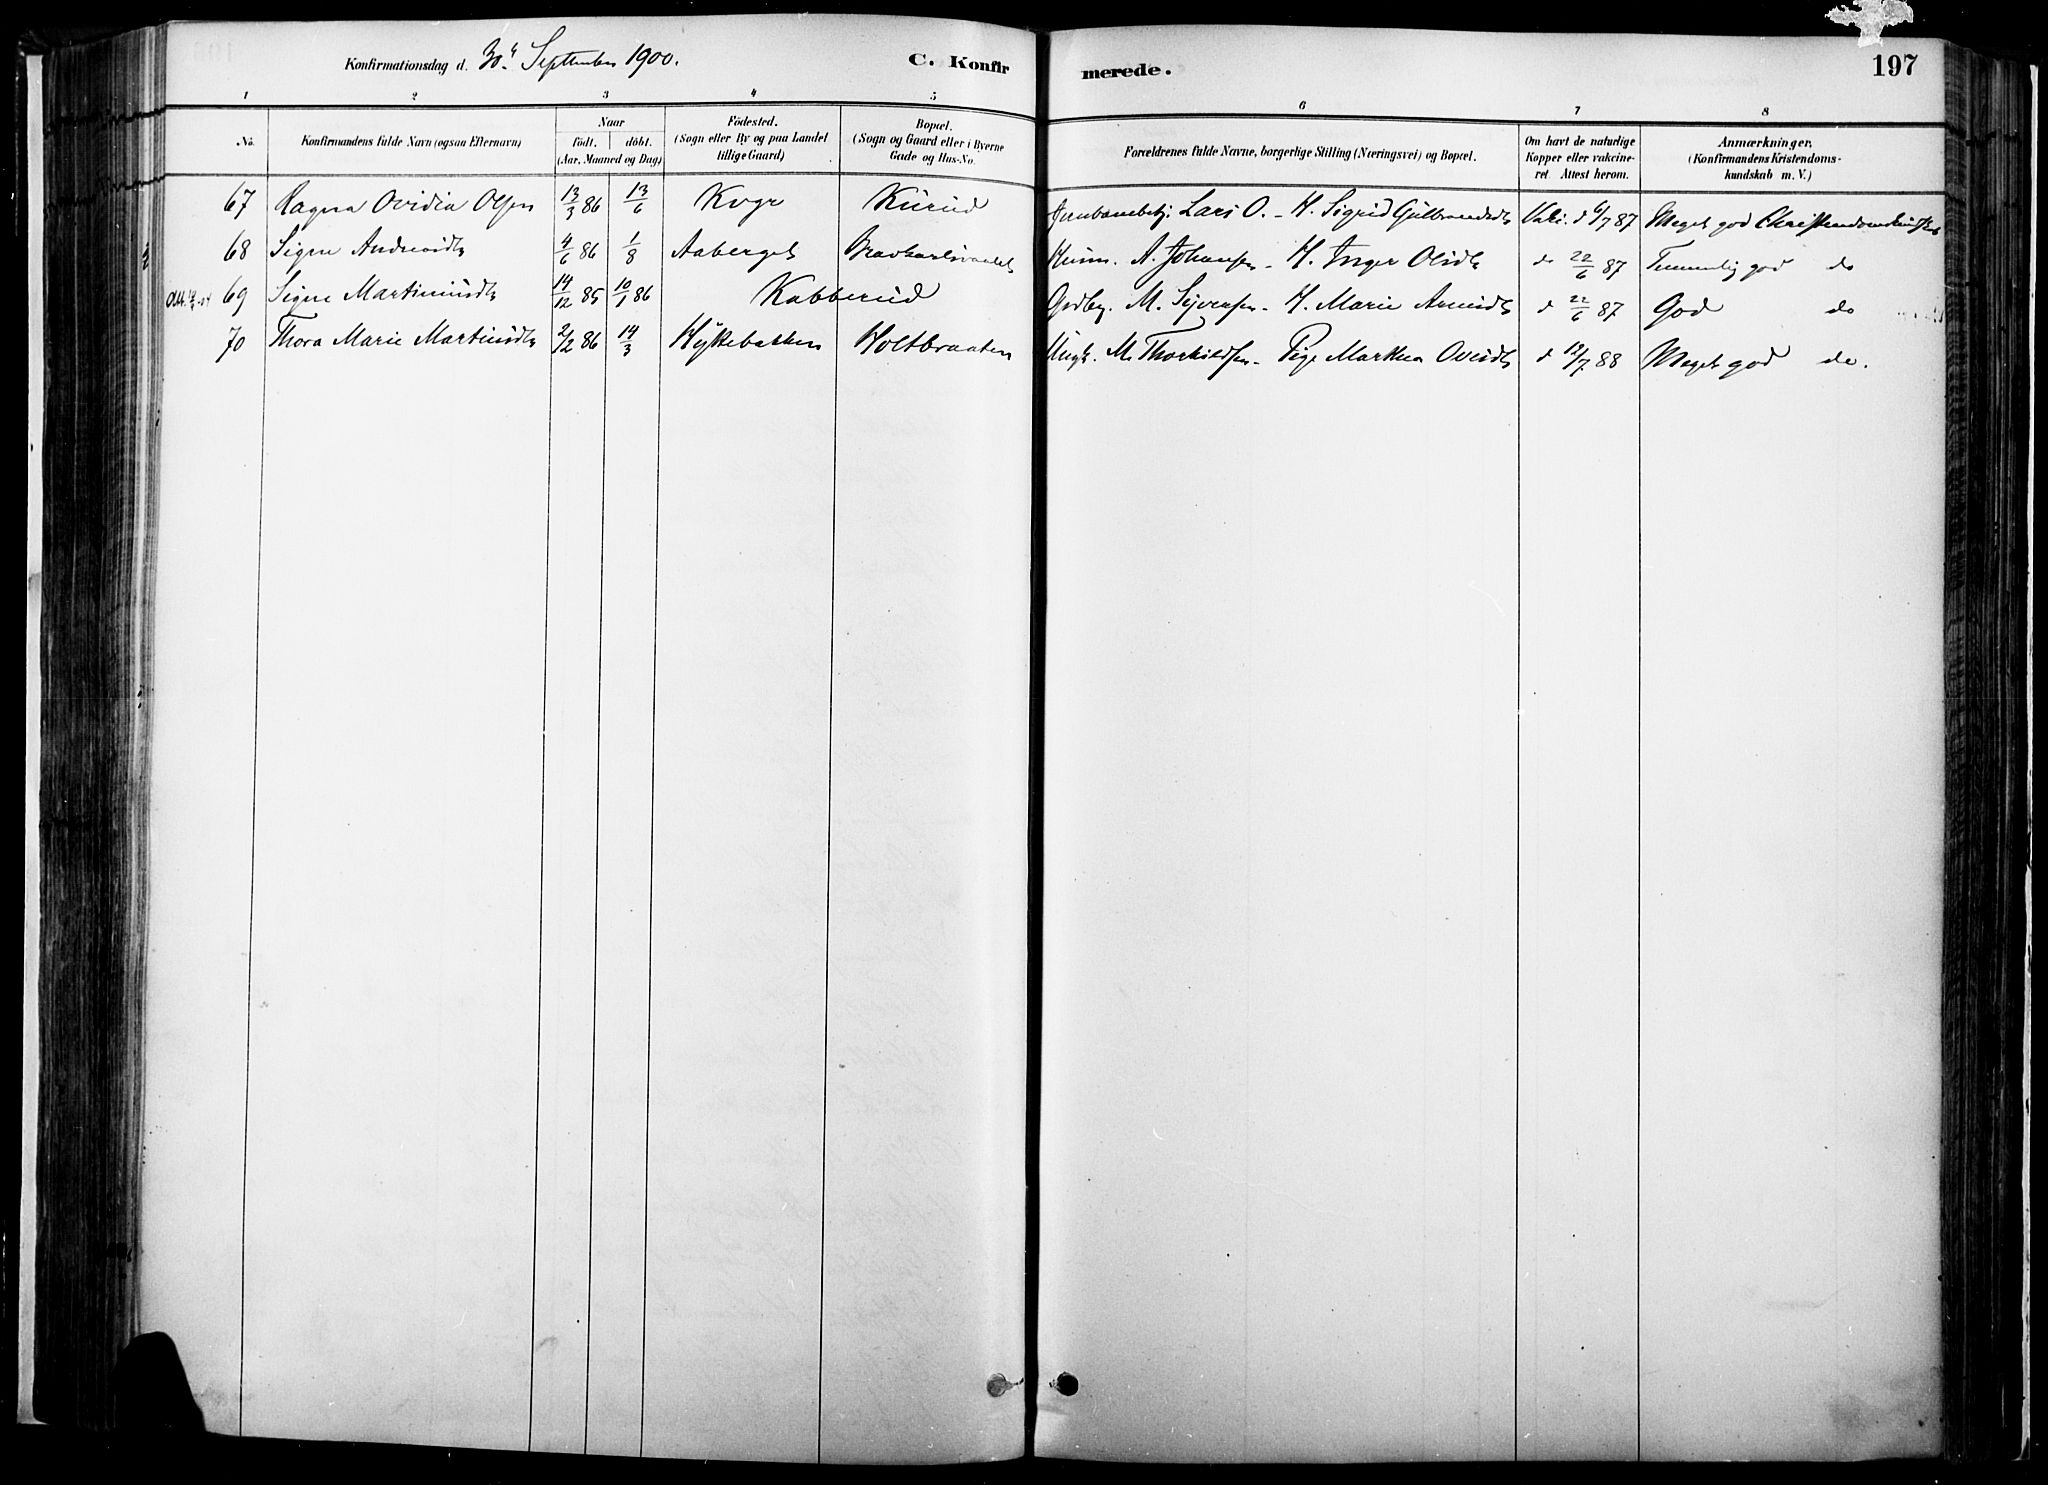 Konfirmationsdag d. 30te September 1900. C. Konfirmerede. 197
1 2 3 4 5 6 7 8
No. Konfirmandens fulde Navn (ogsaa Efternavn) Naar födt. döbt. (Aar, Maaned og Dag) Födested. (Sogn eller By og paa Landet tillige Gaard) Bopæl. (Sogn og Gaard eller i Byerne Gade og Hus-No. Forældrenes fulde Navne, borgerlige Stilling (Næringsvei) og Bopæl. Om havt de naturlige Kopper eller vakcineret. Attest herom. Anmærkninger. (Konfirmandens Kristendomskundskab m. V.)
67 Ragna Ovidia Olsen 13/3 86 13/6 Kurud Lars O. - H. Sigrid Gulbrandsdt Vakc. d 6/7 87 Meget god Christendomskundskab
68 Signe Andreasdt 4/6 86 1/8 Aaberget A. Johansen - H. Inger Olsdt do 22/6 87 Temmelig god do
69 Signe Martiniusdt 14/12 85 10/1 86 Kabberud M. Syversen - H. Marie Arnesdt d 22/6 87 God do
70 Thora Marie Martinsdt 2/2 86 14/3 Holtbraaten Ungk. M. Thorkildsen - Pige Marthea Ovesdt d 12/7 88 Meget god do.